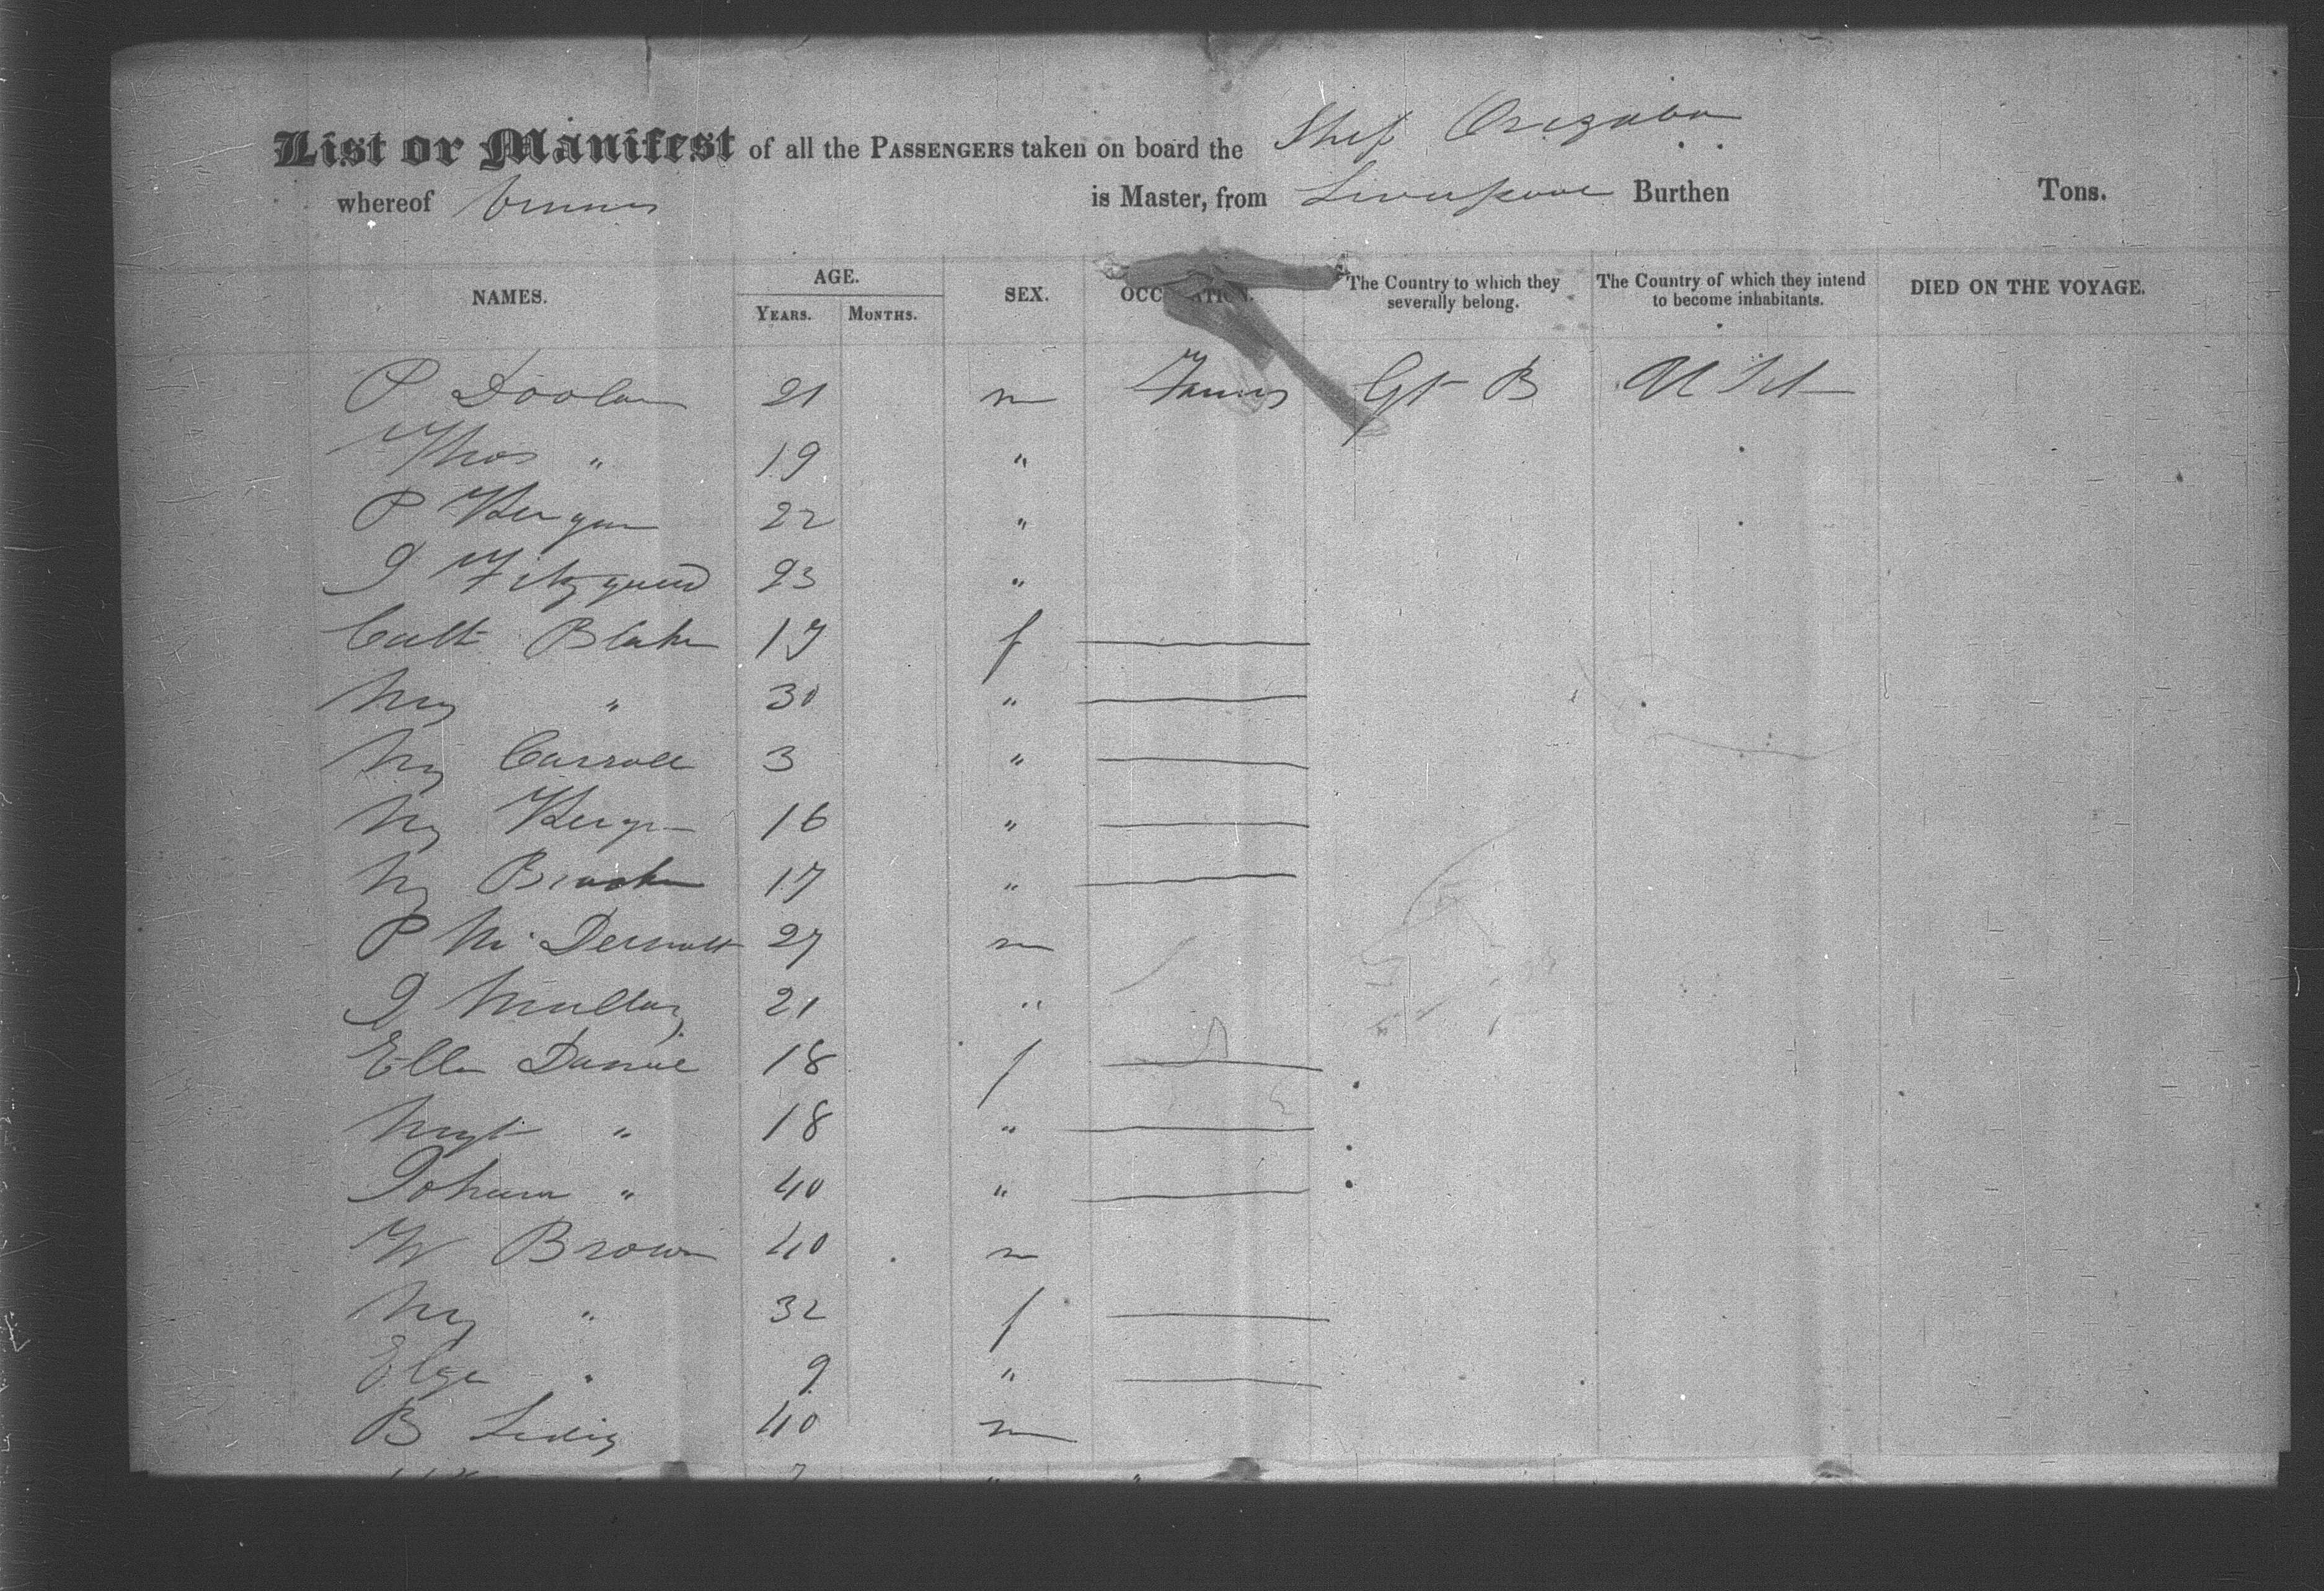 List or Manifest of all the PASSENGERS taken on board the Ship Orizaba
whereof is Master, from Liverpool Burthen Tons.
NAMES. AGE. SEX. OCCUPATION. The Country to which they severally belong. The Country of which they intend to become inhabitants. DIED ON THE VOYAGE.
YEARS. MONTHS.
P Doolan 21 m Farmer Gt B U St
Thos " 19 "
P 22 "
J Fitzgerald 23 "
Cath Blake 17 f
My " 30 "
My Carroll 3 "
My 16 "
My 17 "
P McDermott 27 m
J 21 "
Ellen 18 f
Mgt " 18 "
Johanna " 40 "
W Brown 40 m
My " 32 f
Eliza " 9 "
B 40 m